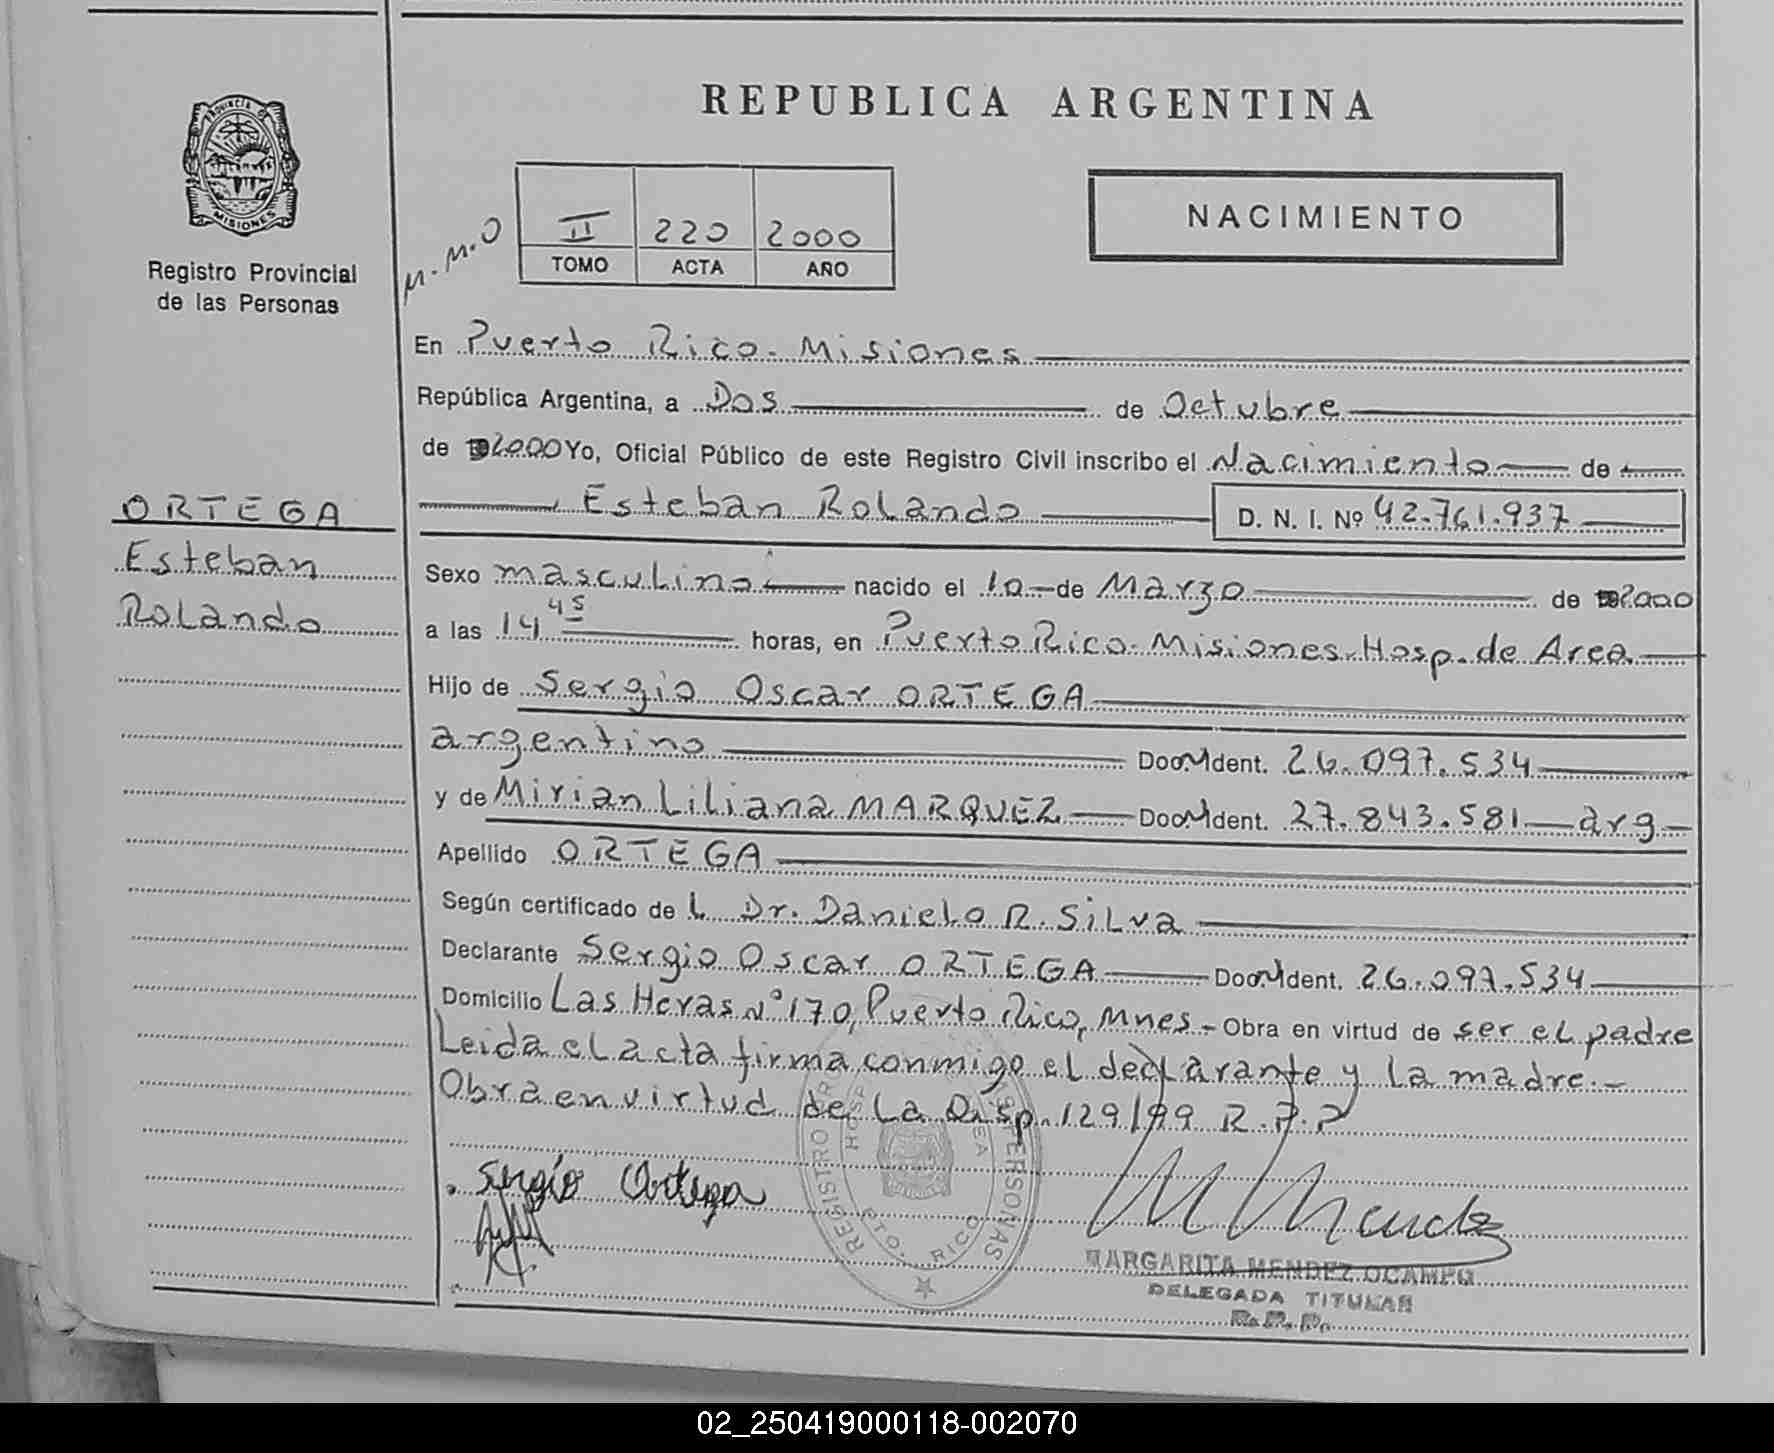 REPUBLICA ARGENTINA
PROVINCIA DE
MISIONES
Registro Provincial
de las Personas
M.M.O
II 220 2000
TOMO ACTA AÑO
NACIMIENTO
En Puerto Rico - Misiones
República Argentina, a Dos de Octubre
de 2000 Yo, Oficial Público de este Registro Civil inscribo el Nacimiento de
Esteban Rolando D. N. I. Nº 42.761.937
ORTEGA
Esteban
Rolando
Sexo masculino nacido el 10 de Marzo de 2000
a las 14 45 horas, en Puerto Rico - Misiones - Hosp. de Area
Hijo de Sergio Oscar ORTEGA
argentino Doc. Ident. 26.097.534
y de Mirian Liliana MARQUEZ Doc. Ident. 27.843.581 arg
Apellido ORTEGA
Según certificado de L Dr. Danielo R. Silva
Declarante Sergio Oscar ORTEGA Doc. Ident. 26.097.534
Domicilio Las Heras Nº 170, Puerto Rico, Mnes - Obra en virtud de ser el padre
Leida el acta firma conmigo el declarante y la madre.-
Obra en virtud de la Disp. 129/99 R.P.P
Sergio Ortega
M Mendez
REGISTRO PERSONAS
HOSP AREA
PTO. RICO
MARGARITA MENDEZ OCAMPO
DELEGADA TITULAR
R. P. P.
02_250419000118-002070